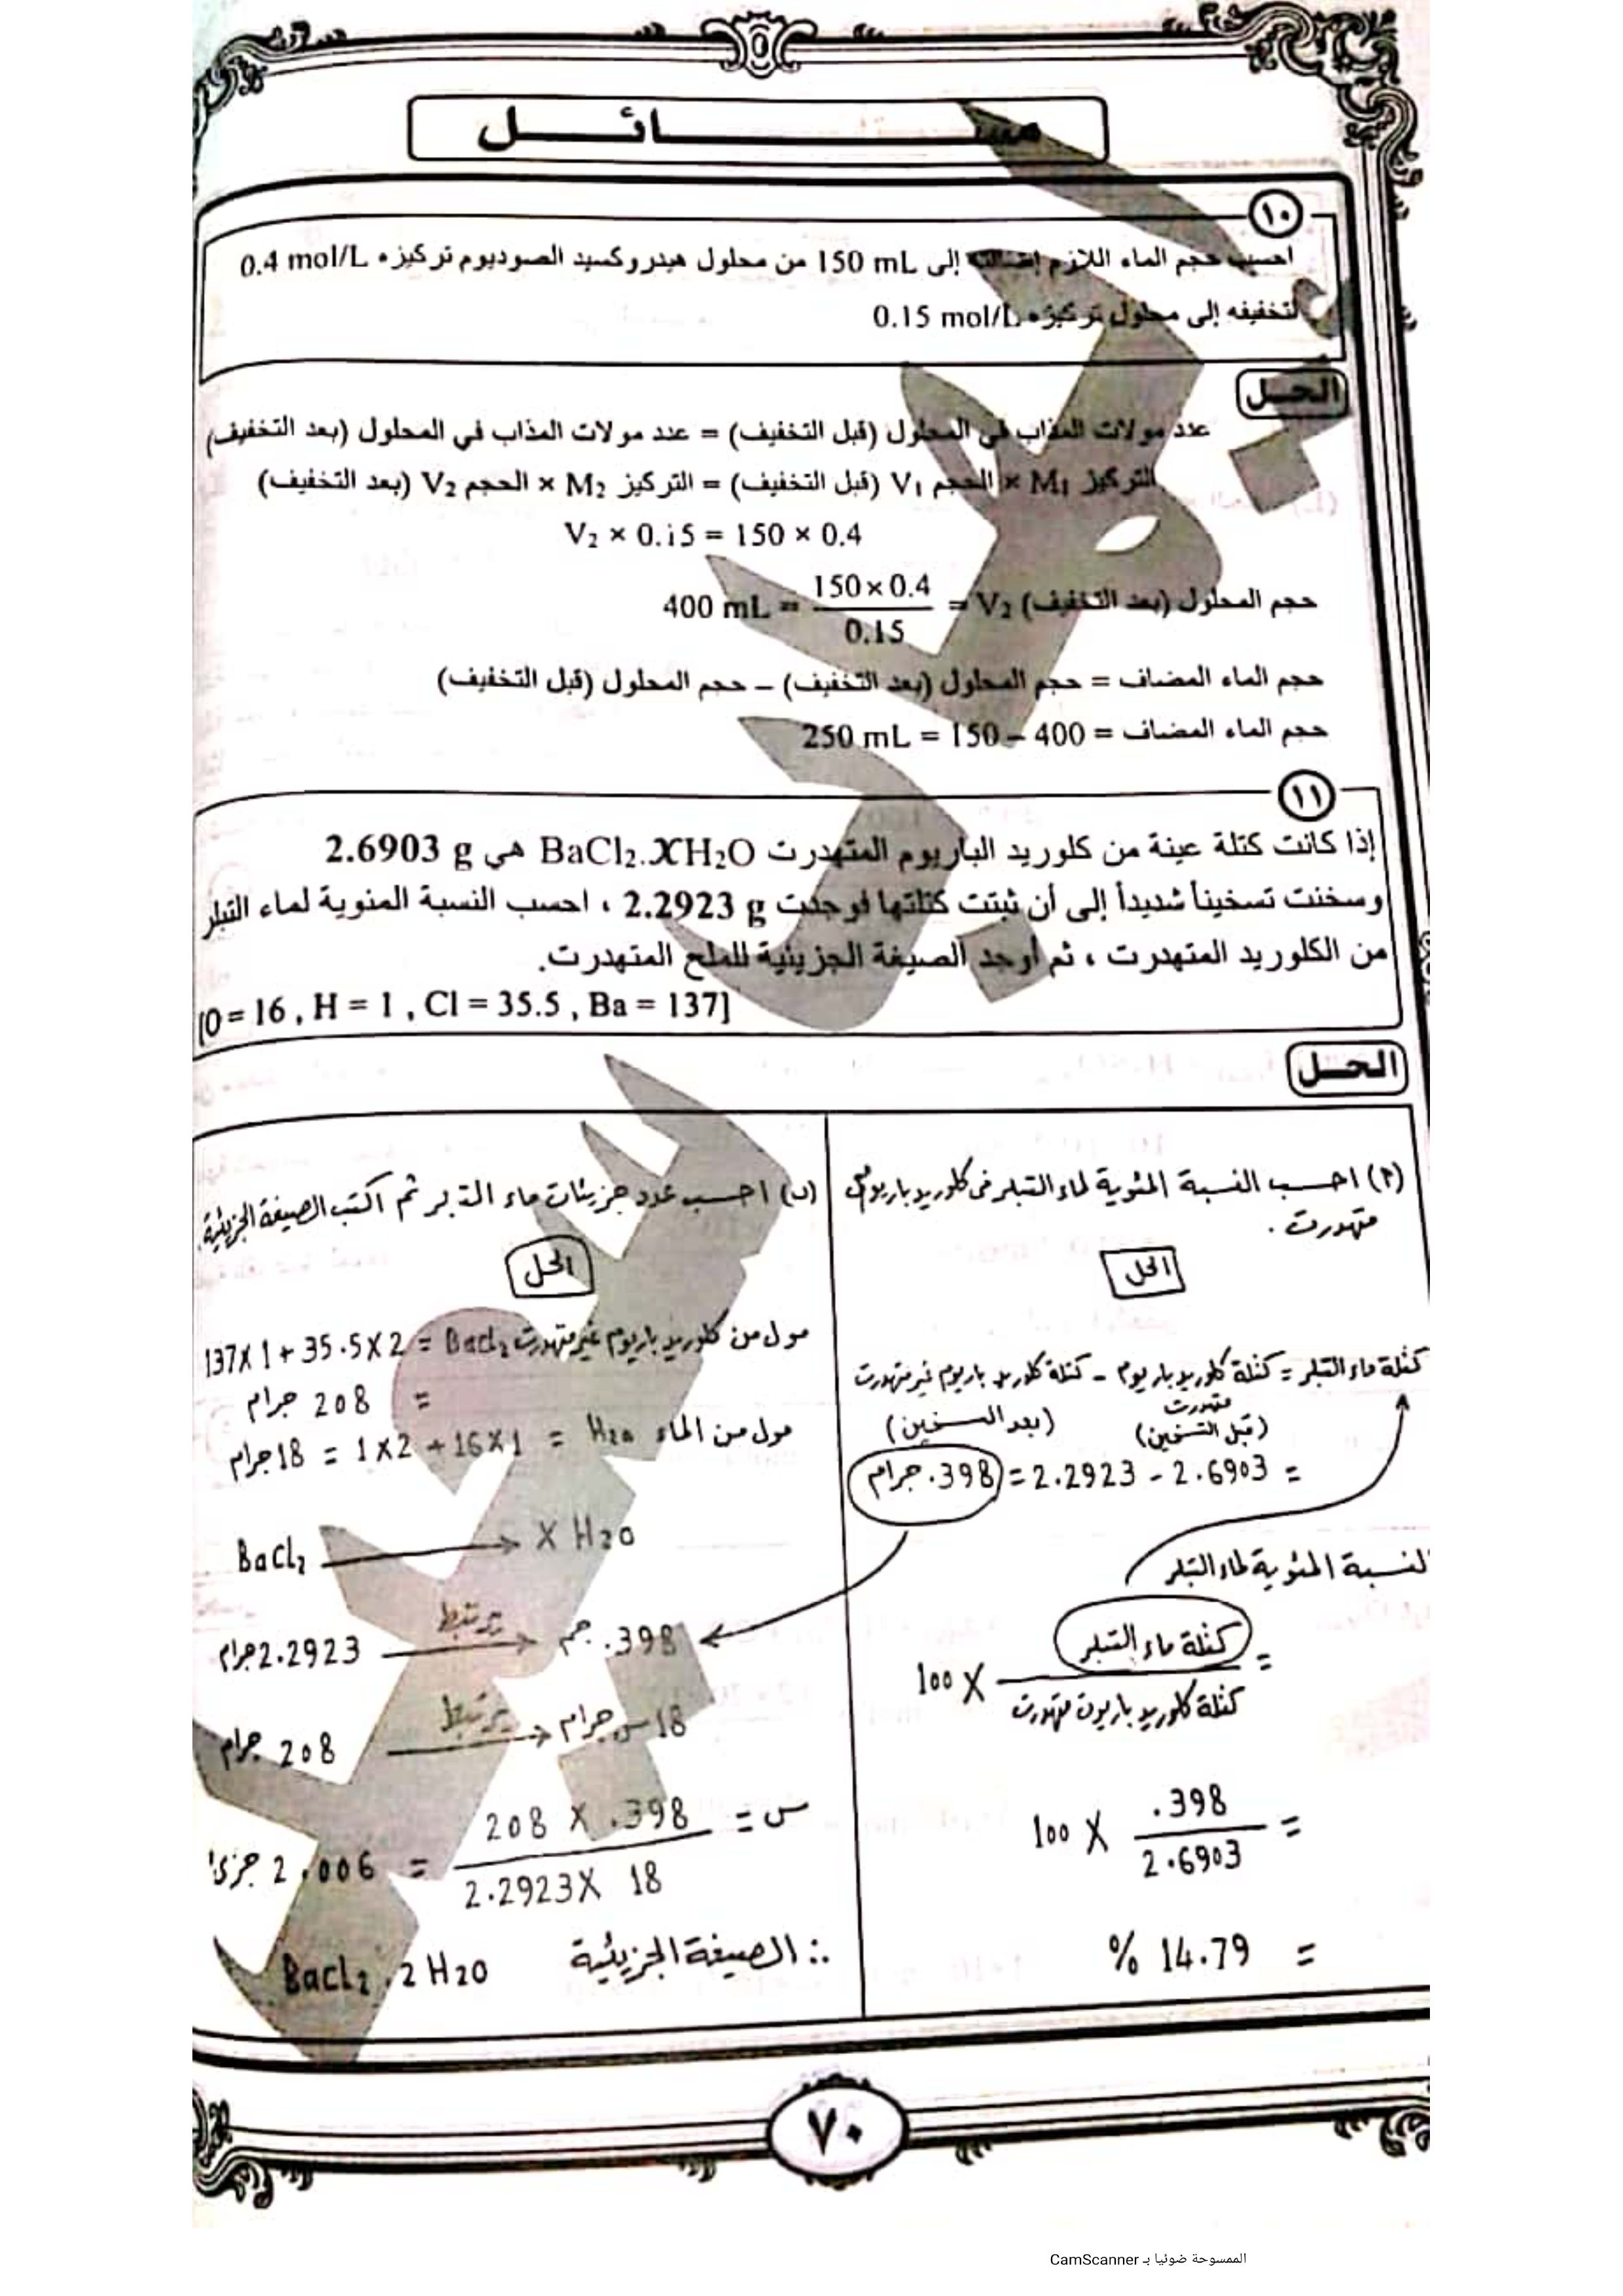 مســـائـــل
١٠
احسب حجم الماء اللازم إضافته إلى 150 mL من محلول هيدروكسيد الصوديوم تركيزه 0.4 mol/L
لتخفيفه إلى محلول تركيزه 0.15 mol/L
الحـل
عدد مولات المذاب في المحلول (قبل التخفيف) = عدد مولات المذاب في المحلول (بعد التخفيف)
التركيز M₁ × الحجم V₁ (قبل التخفيف) = التركيز M₂ × الحجم V₂ (بعد التخفيف)
V₂ × 0.15 = 150 × 0.4
حجم المحلول (بعد التخفيف) V₂ = 150×0.4 / 0.15 = 400 mL
حجم الماء المضاف = حجم المحلول (بعد التخفيف) – حجم المحلول (قبل التخفيف)
حجم الماء المضاف = 400 – 150 = 250 mL
١١
إذا كانت كتلة عينة من كلوريد الباريوم المتهدرت BaCl₂.XH₂O هي 2.6903 g
وسخنت تسخيناً شديداً إلى أن ثبتت كتلتها فوجدت 2.2923 g ، احسب النسبة المئوية لماء التبلر
من الكلوريد المتهدرت ، ثم أوجد الصيغة الجزيئية للملح المتهدرت.
[O = 16 , H = 1 , Cl = 35.5 , Ba = 137]
الحـل
(أ) احسب النسبة المئوية لماء التبلر فى كلوريد باريوم
متهدرت .
الحل
كتلة ماء التبلر = كتلة كلوريد باريوم – كتلة كلوريد باريوم غير متهدرت
متهدرت
(قبل التسخين) (بعد التسخين)
= 2.6903 - 2.2923 = .398 جرام
النسبة المئوية لماء التبلر
= كتلة ماء التبلر / كتلة كلوريد باريوت متهدرت X 100
= .398 / 2.6903 X 100
= 14.79 %
(ب) احسب عدد جزيئات ماء التبلر ثم اكتب الصيغة الجزيئية.
الحل
مول من كلوريد باريوم غير متهدرت BaCl₂ = 137X1 + 35.5X2
= 208 جرام
مول من الماء H₂O = 1X2 + 16X1 = 18 جرام
BaCl₂ → X H₂O
2.2923 جرام يرتبط → .398 جم
208 جرام يرتبط → 18 س جرام
س = 208 X .398 / 2.2923 X 18 = 2.006 جزئ
∴ الصيغة الجزيئية BaCl₂ . 2 H₂O
٧٠
الممسوحة ضوئيا بـ CamScanner